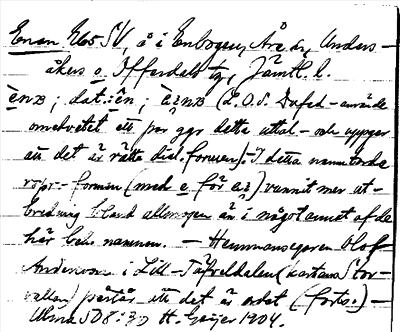 Enan Elos SV, å i Enbogen, Åre sn, Unders-
åkers o. Offerdals tg, Jämtl. l.
ènɒ; dat. i ên; (L.O.S. Dufed - använde
omedvetet ett par ggr detta uttal - och uppger
att det är rätta dial. formen). I detta namn torde
rspr.-formen (med e för ) vunnit mer ut-
bredning bland allmogen än i något annat af de
här beh. namnen. - Hemmansegaren Olof
Andersson i Lill-Täfveldalen (kartans Stor-
vallen) påstår att det är ordet (forts.) -
SOU 8:30 H. Geijer 1904.